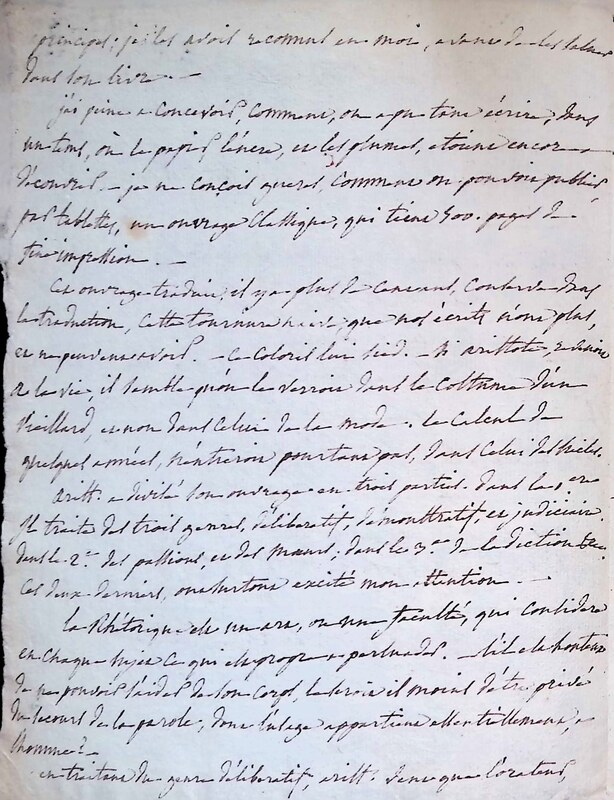 principes; je les avois reconnus en moi, avant de les
dans son livre. —
j'ai peine a concevoir, comment, on a pu tant écrire, dans
un tems, où le papier l'encre, et les plumes, etoient encore a
découvrir. — je ne conçois gueres, comment on pouvoit publier
par tablettes, un ouvrage classique, qui tient 500. pages de
fine impression. —
Cet ouvrage traduit, il y a plus de cent ans, conserve dans
la traduction, cette tournure naïve, que nos écrits n'ont plus,
et ne peuvent avoir. — Ce coloris lui sied. — Si aristote,
a la vie, il semble qu'on le verroit dans le costume d'un
vieillard, et non dans celui de la mode. Le calcul de
quelques années, n'entreroit pourtant pas, dans celui des siècles.
arist. a divisé son ouvrage en trois parties. dans la 1ere
Il traite des trois genres, déliberatif, démonstratif, et judiciaire
dans le 2e. des passions, et des mœurs. dans le 3e. de la diction
Ces deux derniers, ont surtout excité mon attention. —
la Rhétorique est un art, ou une faculté, qui considere
en chaque sujet ce qui est propre a persuader. — s'il est honteux
de ne pouvoir s'aider de son corps, le seroit il moins d'être privé
du secours de la parole, dont l'usage appartient essentiellement, a
l'homme? —
en traitant du genre déliberatif, arist. veut que l'orateur,